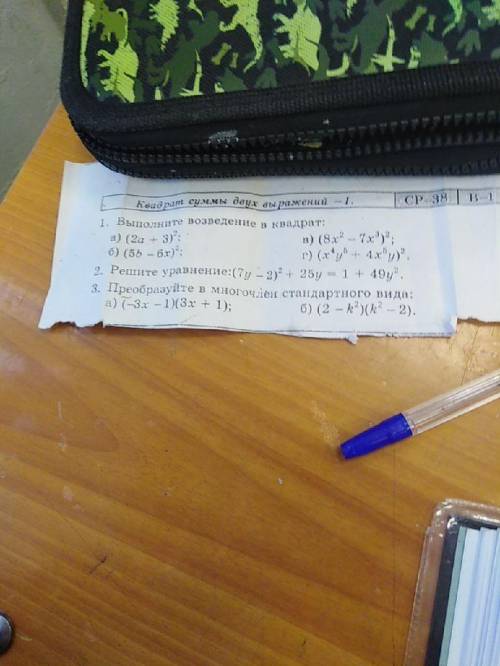 Квадрат суммы двух выражений –1. СР–38 В–1
1. Выполните возведение в квадрат:
а) (2a + 3)²; в) (8x² – 7x³)²;
б) (5b – 6x)²; г) (x⁴y⁵ + 4x⁵y)².
2. Решите уравнение:(7y – 2)² + 25y = 1 + 49y².
3. Преобразуйте в многочлен стандартного вида:
а) (–3x –1)(3x + 1); б) (2 – k²)(k² – 2).